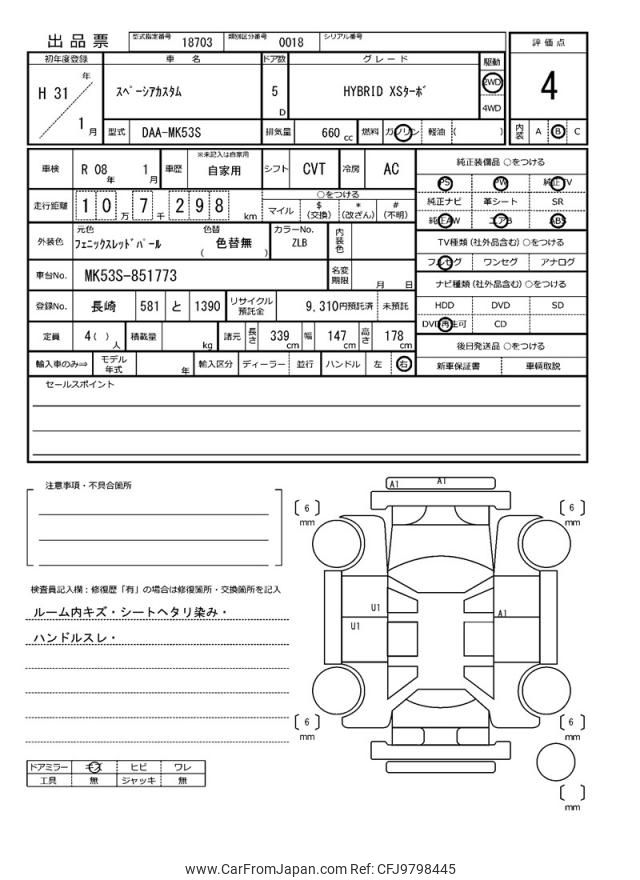 出品票
型式指定番号 18703 類別区分番号 0018 シリアル番号
評価点
初年度登録 車名 ドア数 グレード 駆動
H 31 年 1 月
スペーシアカスタム 5 D HYBRID XSターボ 2WD 4WD
4
型式 DAA-MK53S 排気量 660 cc 燃料 ガソリン 軽油 ( ) 内装 A B C
車検 R 08 年 1 月 車歴 ※未記入は自家用 自家用 シフト CVT 冷房 AC
純正装備品 ○をつける
PS PW 純正TV
純正ナビ 革シート SR
純正AW エアB ABS
走行距離 10万7千298 km
○をつける
マイル $(交換) *(改ざん) #(不明)
外装色 元色 フェニックスレッドパール 色替 ( 色替無 ) カラーNo. ZLB 内装色
TV種類 (社外品含む) ○をつける
フルセグ ワンセグ アナログ
車台No. MK53S-851773 名変期限 月 日
ナビ種類 (社外品含む) ○をつける
HDD DVD SD
DVD再生可 CD
登録No. 長崎 581 と 1390 リサイクル預託金 9,310円預託済 未預託
定員 4( )人 積載量 kg 諸元 長さ 339 cm 幅 147 cm 高さ 178 cm
後日発送品 ○をつける
新車保証書 車輌取説
輸入車のみ⇒ モデル年式 年 輸入区分 ディーラー 並行 ハンドル 左 右
セールスポイント
注意事項・不具合箇所
検査員記入欄：修復歴「有」の場合は修復箇所・交換箇所を記入
ルーム内キズ・シートヘタリ染み・
ハンドルスレ・
ドアミラー キズ ヒビ ワレ
工具 無 ジャッキ 無
A1 A1
[ 6 ] mm
[ 6 ] mm
U1
U1
A1
[ 6 ] mm
[ 6 ] mm
[ ] mm
www.CarFromJapan.com Ref: CFJ9798445